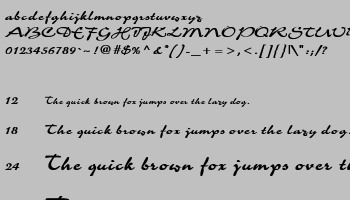 abcdefghijklmnopqrstuvwxyz
ABCDEFGHIJKLMNOPQRSTUVW
0123456789`~!@#$%^&*()-_+=>,<.[]{}|\":;/?
12 The quick brown fox jumps over the lazy dog.
18 The quick brown fox jumps over the lazy dog.
24 The quick brown fox jumps over